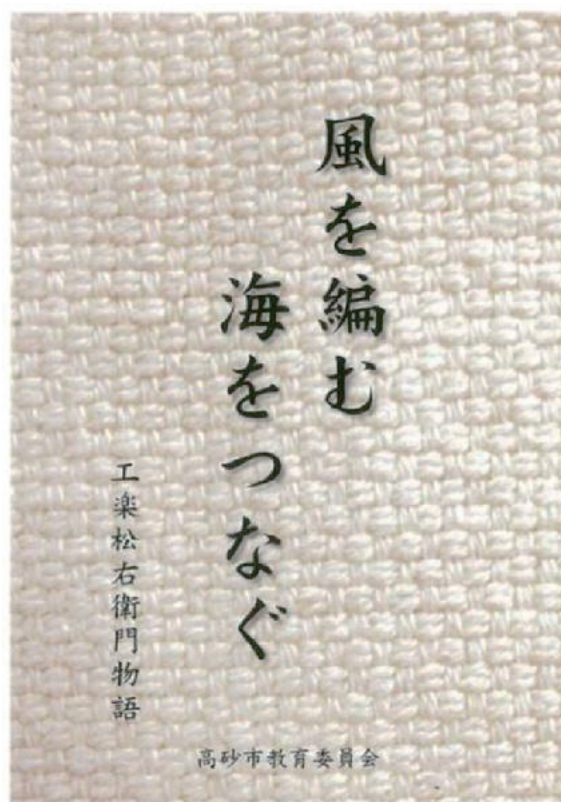 風を編む
海をつなぐ
工楽松右衛門物語
高砂市教育委員会